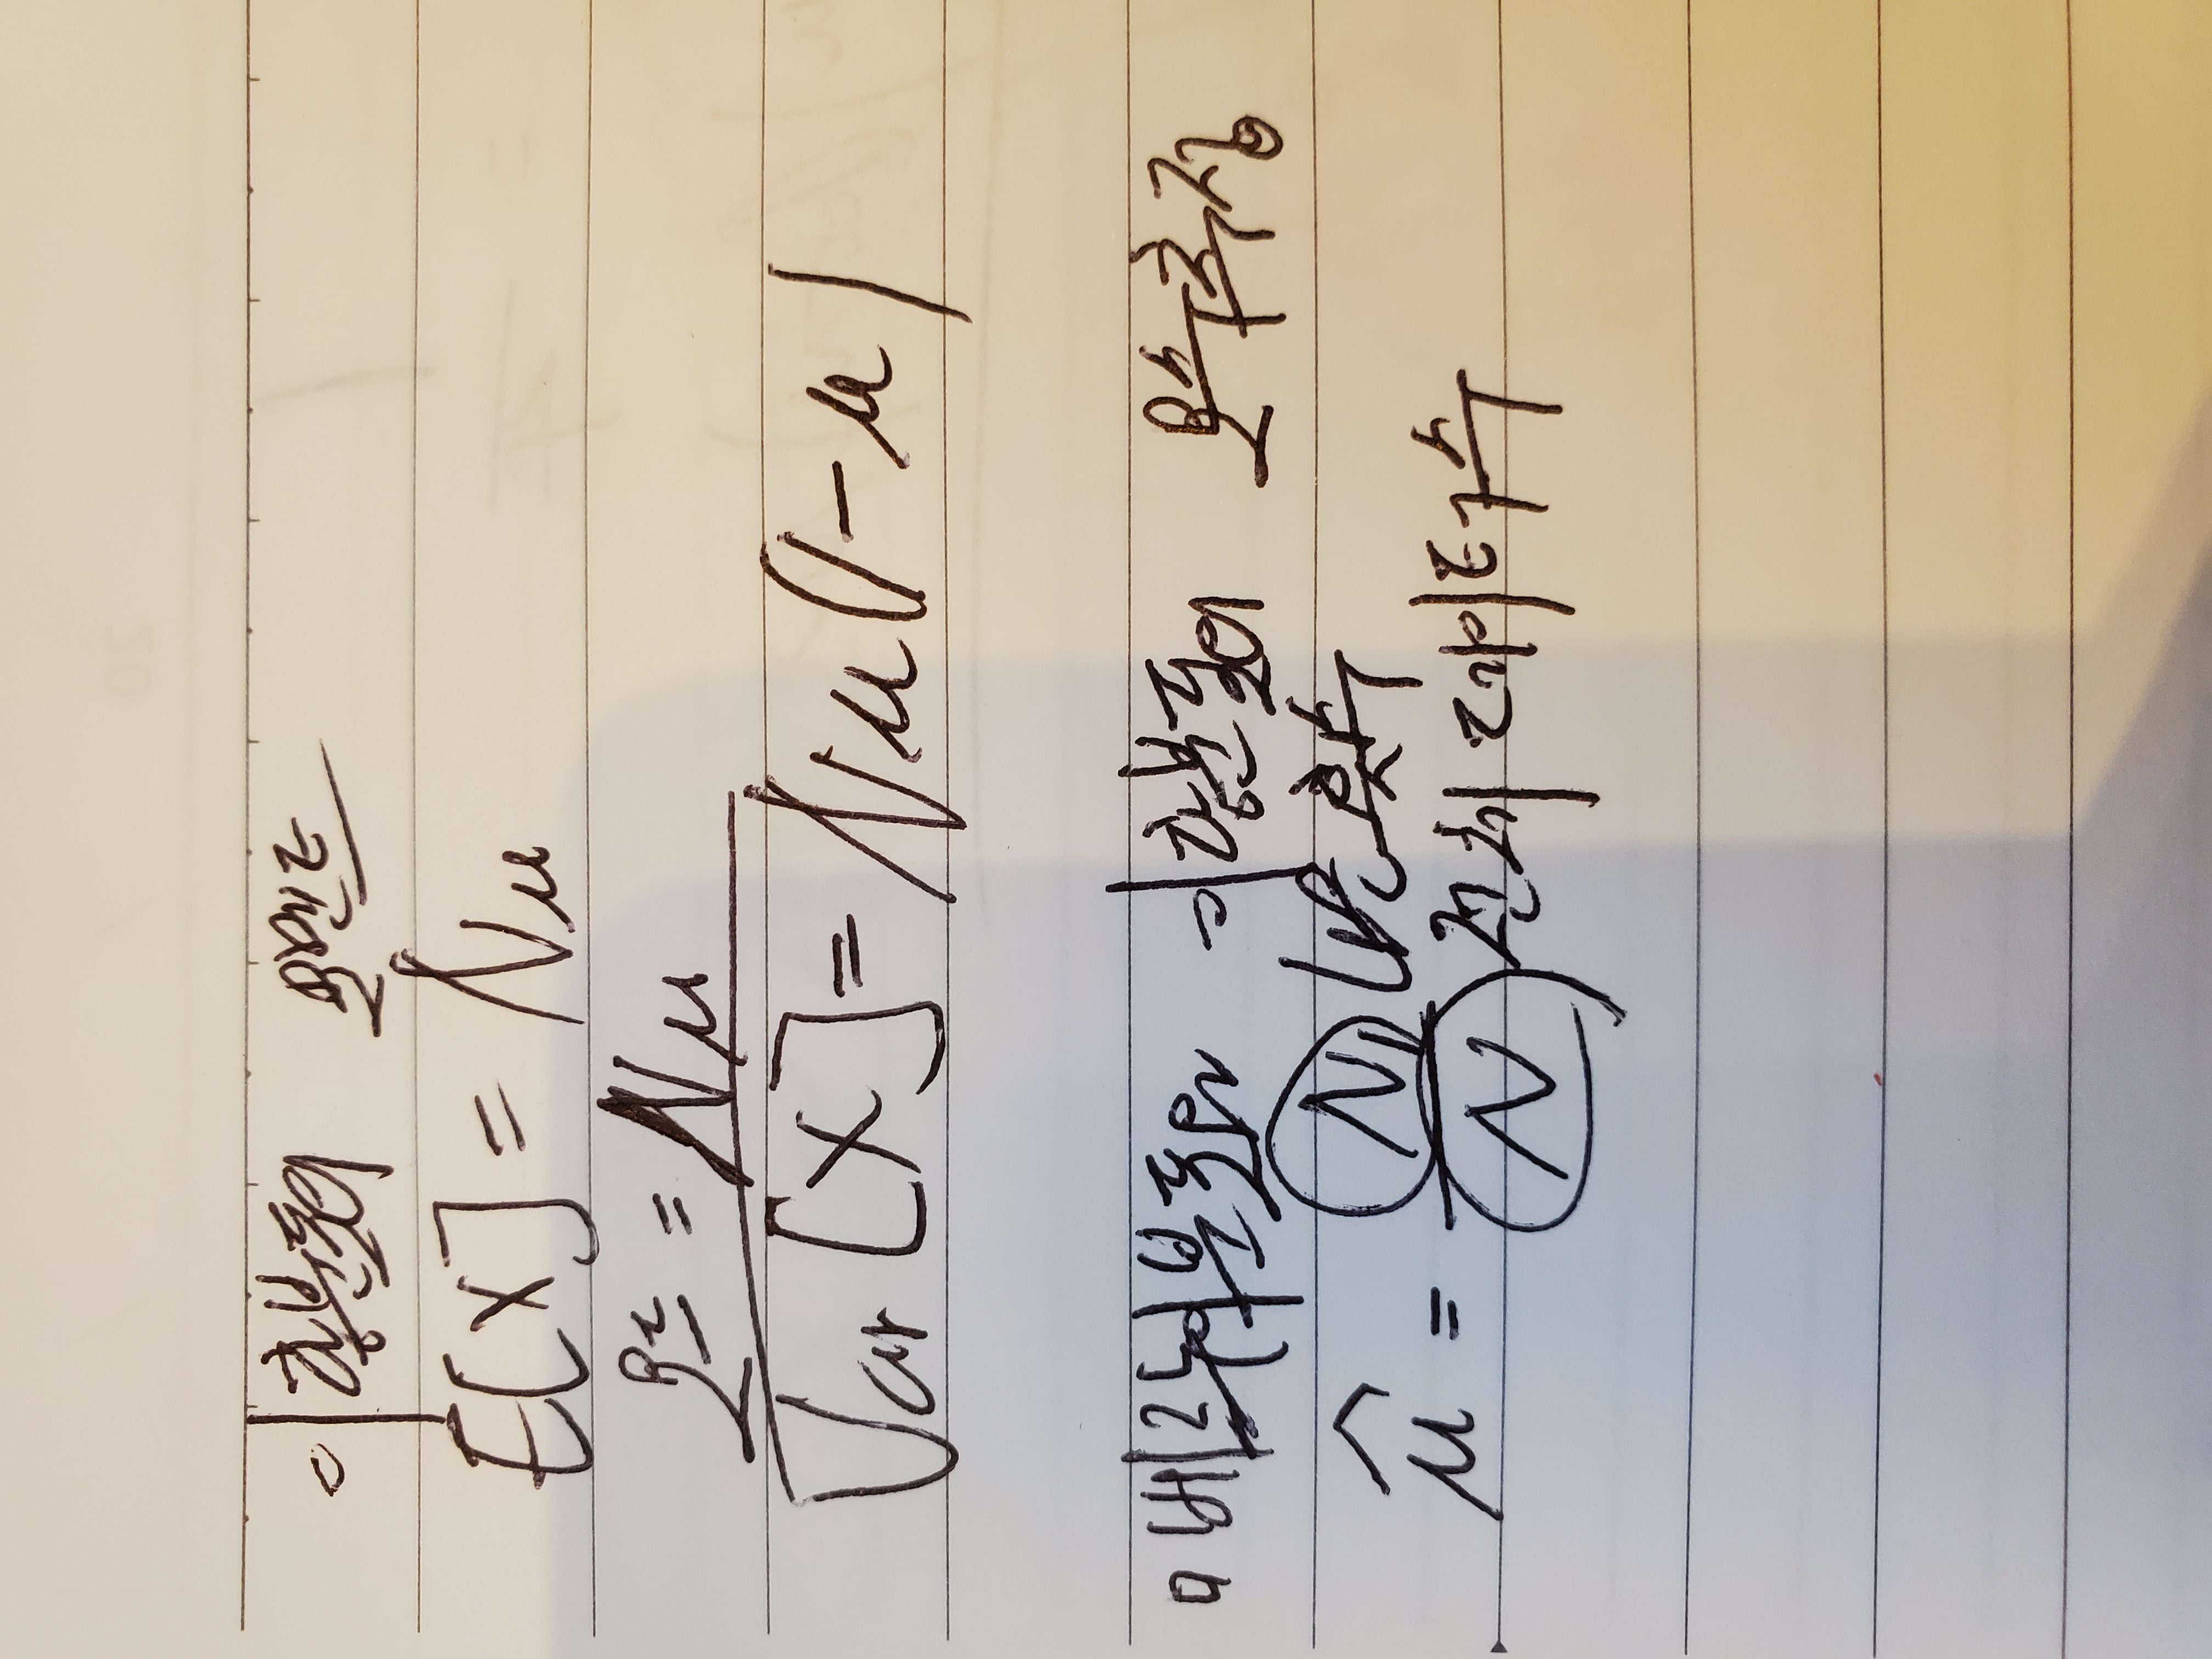 이항분포의 모멘트
E[X] = Nμ
모드 = Nμ
Var[X] = Nμ(1-μ)
□ 베르누이분포와 이항분포의 모수추정
μ̂ = N₁ 나온 횟수
N 전체 데이터수